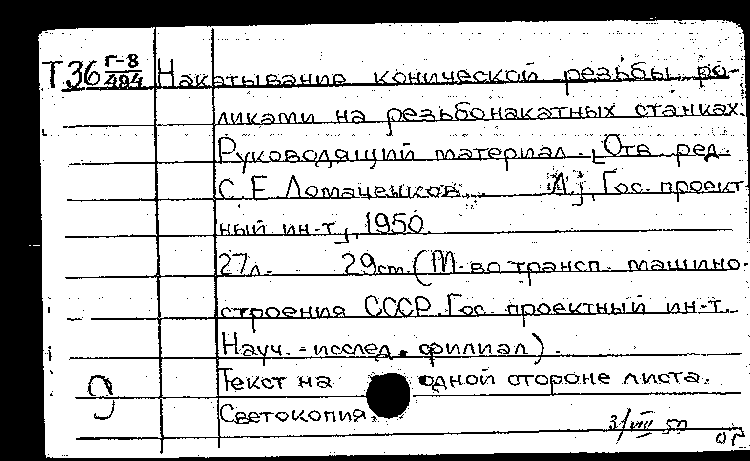 Т36 Г-8/494 Накатывание конической резьбы ро-
ликами на резьбонакатных станках.
Руководящий материал. [Отв. ред.
С. Е. Ломаченков. Л.], Гос. проект-
ный ин-т], 1950.
27л. 29см. (М-во трансп. машино-
строения СССР. Гос. проектный ин-т.
Науч.-исслед. филиал).
Текст на одной стороне листа.
Светокопия.
3/VIII 50